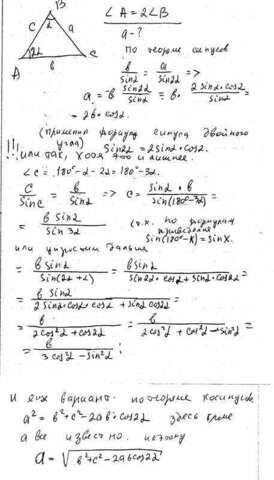 B
∠A = 2∠B
α
c
a
a - ?
2α
A
b
C
По теореме синусов
b/sinα = a/sin2α =>
a = b sin2α/sinα = b · 2sinα·cosα/sinα =
= 2b·cosα.
(применил формулу синуса двойного угла) sin2α = 2sinα·cosα.
!!! или так, хотя это и лишнее.
∠C = 180° - α - 2α = 180° - 3α.
c/sinC = b/sinα => c = sinα·b/sin(180°-3α) =
= b sinα/sin3α (т.к. по формулам приведения sin(180°-x) = sinx.
или упростим дальше
= b sinα/sin(2α+α) = b sinα/sin2α·cosα+sinα·cos2α =
= b sinα/2sinα·cosα·cosα+sinα cos2α =
= b/2cos²α+cos2α = b/2cos²α+cos²α-sin²α =
= b/3cos²α-sin²α ;
И ещё вариант. по теореме косинусов
a² = b²+c²-2ab·cos2α здесь кроме
a все известно. поэтому
a = √b²+c²-2ab cos2α